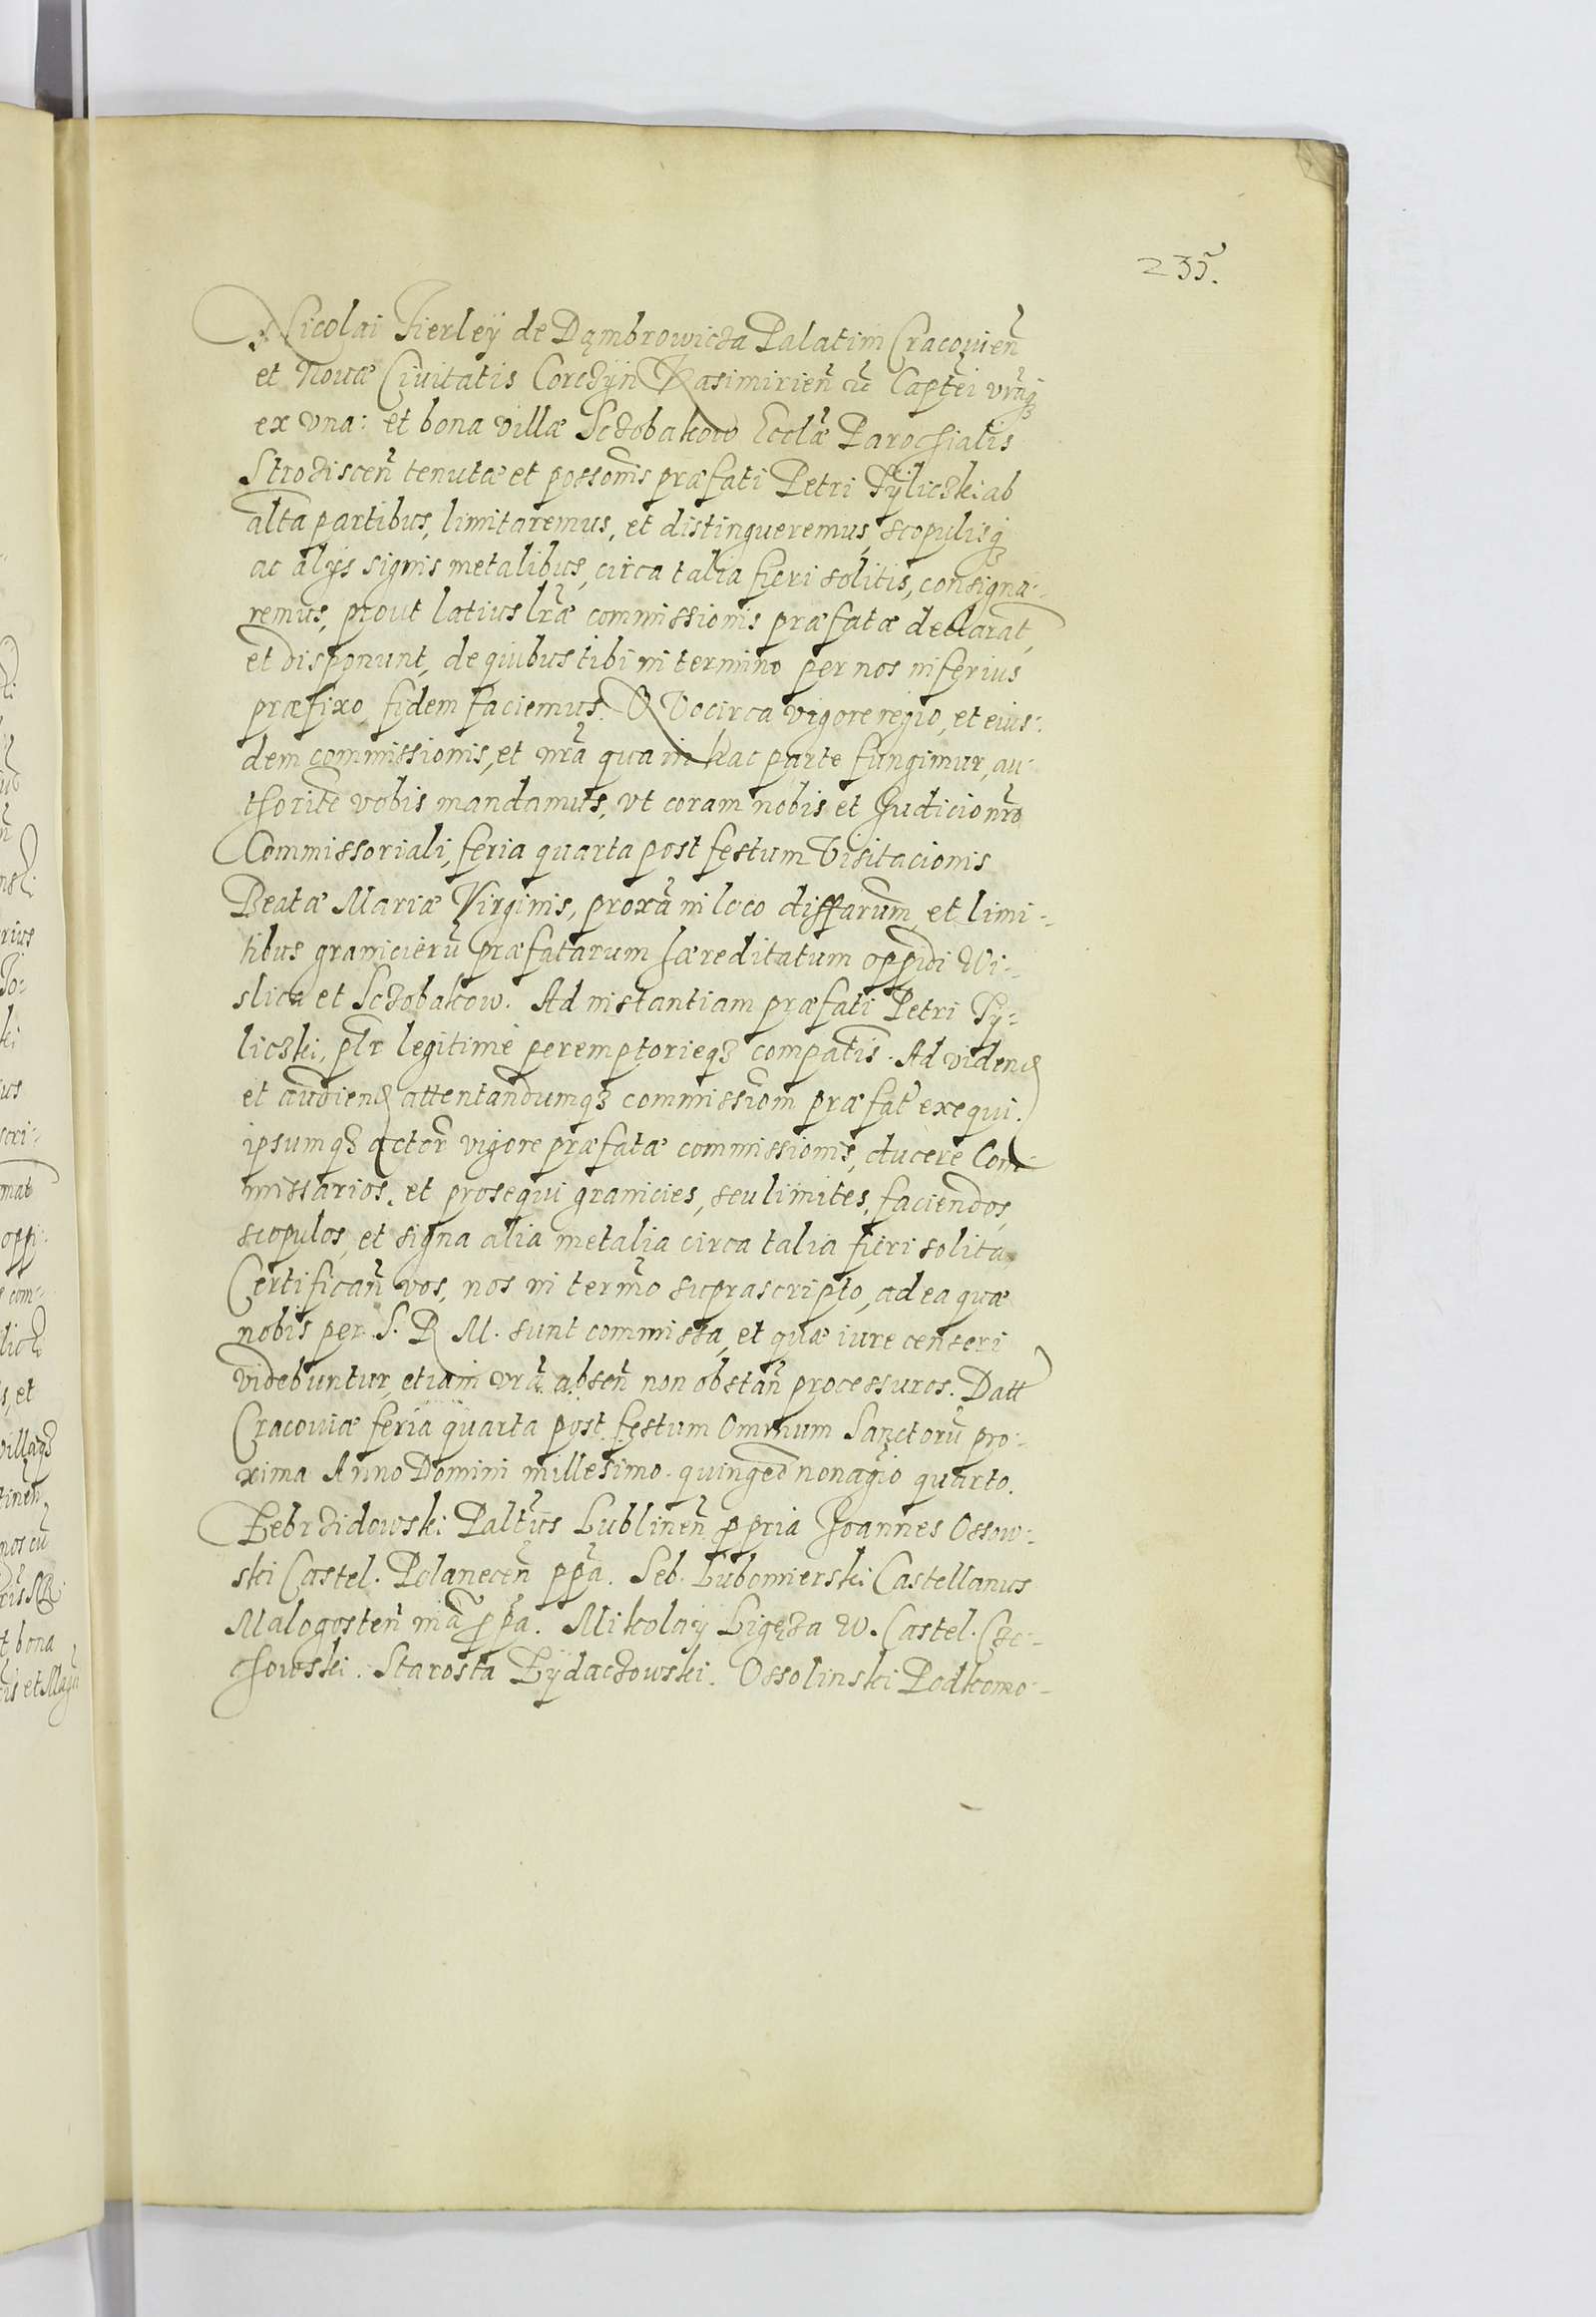 235.
Nicolai Fierleÿ de Dąmbrowicza Palatini Cracovien̄
et Novæ Civitatis Corczÿn Kasimirien̄ etc̄ Captēi vr̄aq
ex vna: et bona villæ Sczobakow Eccl̄æ Parochialis
Strodiscen̄ tenutæ et possonis præfati Petri Tÿliczki ab
alta partibus, limitaremus, et distingueremus, scopulisq
ac alÿs signis metalibus, circa talia fieri solitis, consigna-
remus, prout latius lr̄æ commissionis præfatæ declarat,
et disponunt, de quibus tibi in termino per nos inferius
præfixo, fidem faciemus. QVocirca vigore regio, et eius-
dem commissionis, et nr̄a qua in hac parte fungimur, au-
thorite vobis mandamus, vt coram nobis et Iudicio nr̄o
Commissoriali, feria quarta post festum Visitacionis
Beatæ Mariæ Virginis, proxā in loco diffarum, et limi-
tibus granicierū præfatarum hæreditatum oppidi Wi-
slica et Sczobakow. Ad instantiam præfati Petri Ty-
liczki, plr legitime peremptorieqz compatis. Ad videnđ
et audienđ attentandumqz commissiom præfat exequi.
ipsumqz actor vigore præfatæ commissionis, ducere Com-
missarios, et prosequi granicies, seu limites, faciendos,
scopulos, et signa alia metalia circa talia fieri solita
Certifican̄ vos, nos in termo suprascripto, ad ea quæ
nobis per S. R M. sunt commissa, et quæ iure censeri
videbuntur, etiam vrā absen̄ non obstan̄ processuros. Datt
Cracoviæ feria quarta post festum Omnium Sanctorū pro-
xima Anno Domini millesimo quingeo nonagio quarto.
Zebrzidowski Paltus Lublinen̄ ppria Ioannes Ossow-
ski Castel. Polanecen̄ ppa. Seb. Lubomierski Castellanus
Malogosten̄ mā ppa. Mikolaÿ Ligęza W. Castel. Cze-
chowski. Starosta Zÿdaczowski. Ossolinski Podkomo-